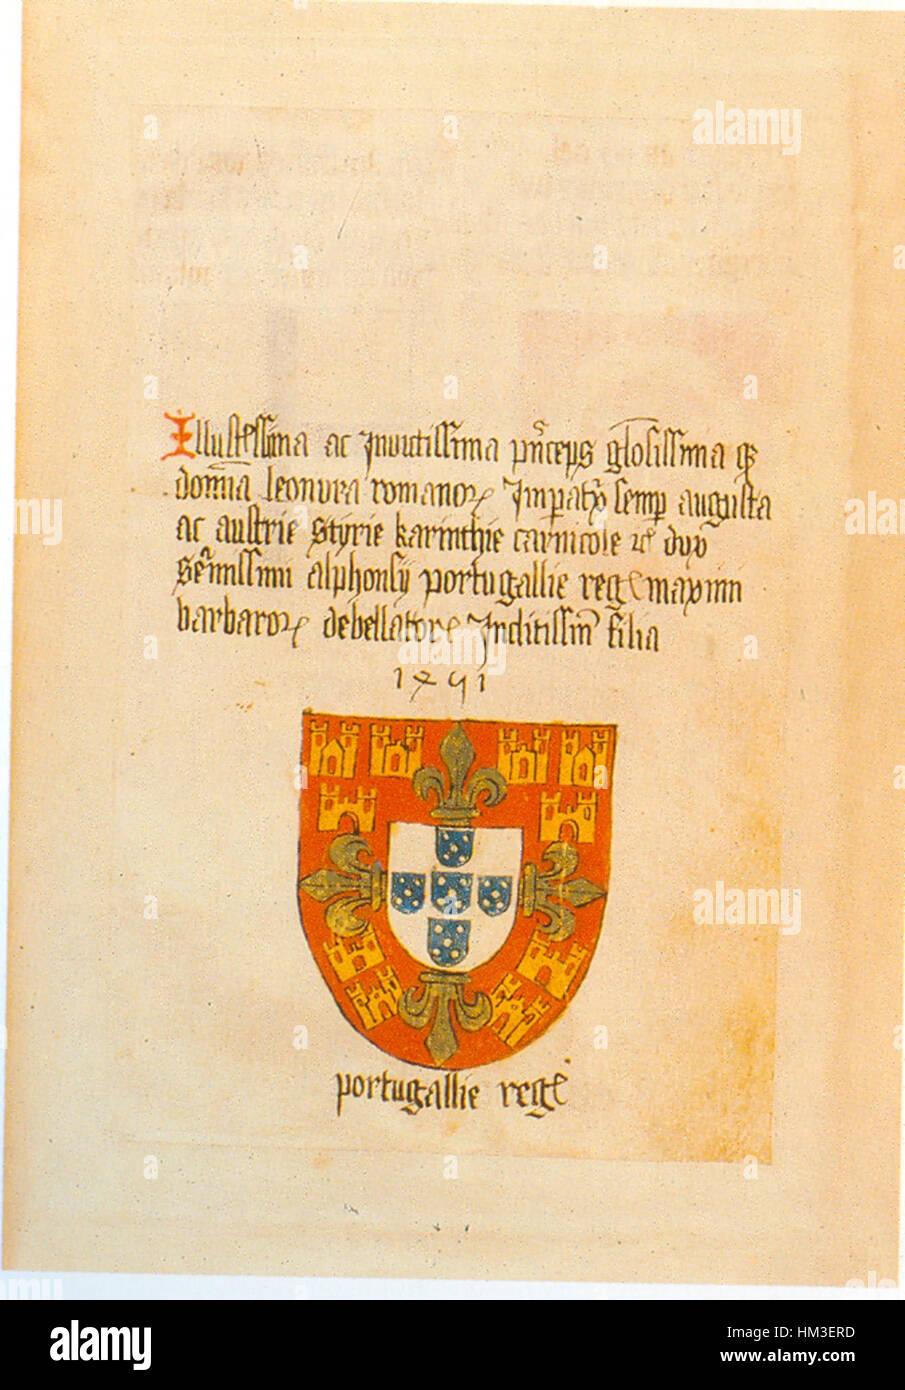 Illustrissima ac Invictissima princeps gloriosissima
domina leonora romanorum Imperatrix semper augusta
ac austrie Styrie karinthie carniole dux
Serenissimi alphonsi portugallie regis maximi
barbarorum debellatoris Inclitissimi filia
1491
portugallie regis
alamy
Image ID: HM3ERD
www.alamy.com